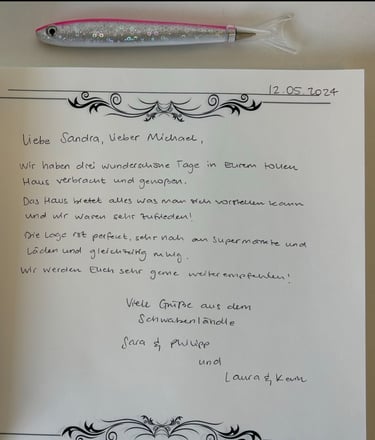 12.05.2024
Liebe Sandra, lieber Michael,
wir haben drei wunderschöne Tage in Eurem tollen
Haus verbracht und genoßen.
Das Haus bietet alles was man sich vorstellen kann
und wir waren sehr zufrieden!
Die Lage ist perfekt, sehr nah an Supermärkte und
Läden und gleichzeitig ruhig.
Wir werden Euch sehr gerne weiterempfehlen!
Viele Grüße aus dem
Schwabenländle
Sara & Philipp
und
Laura & Kevin